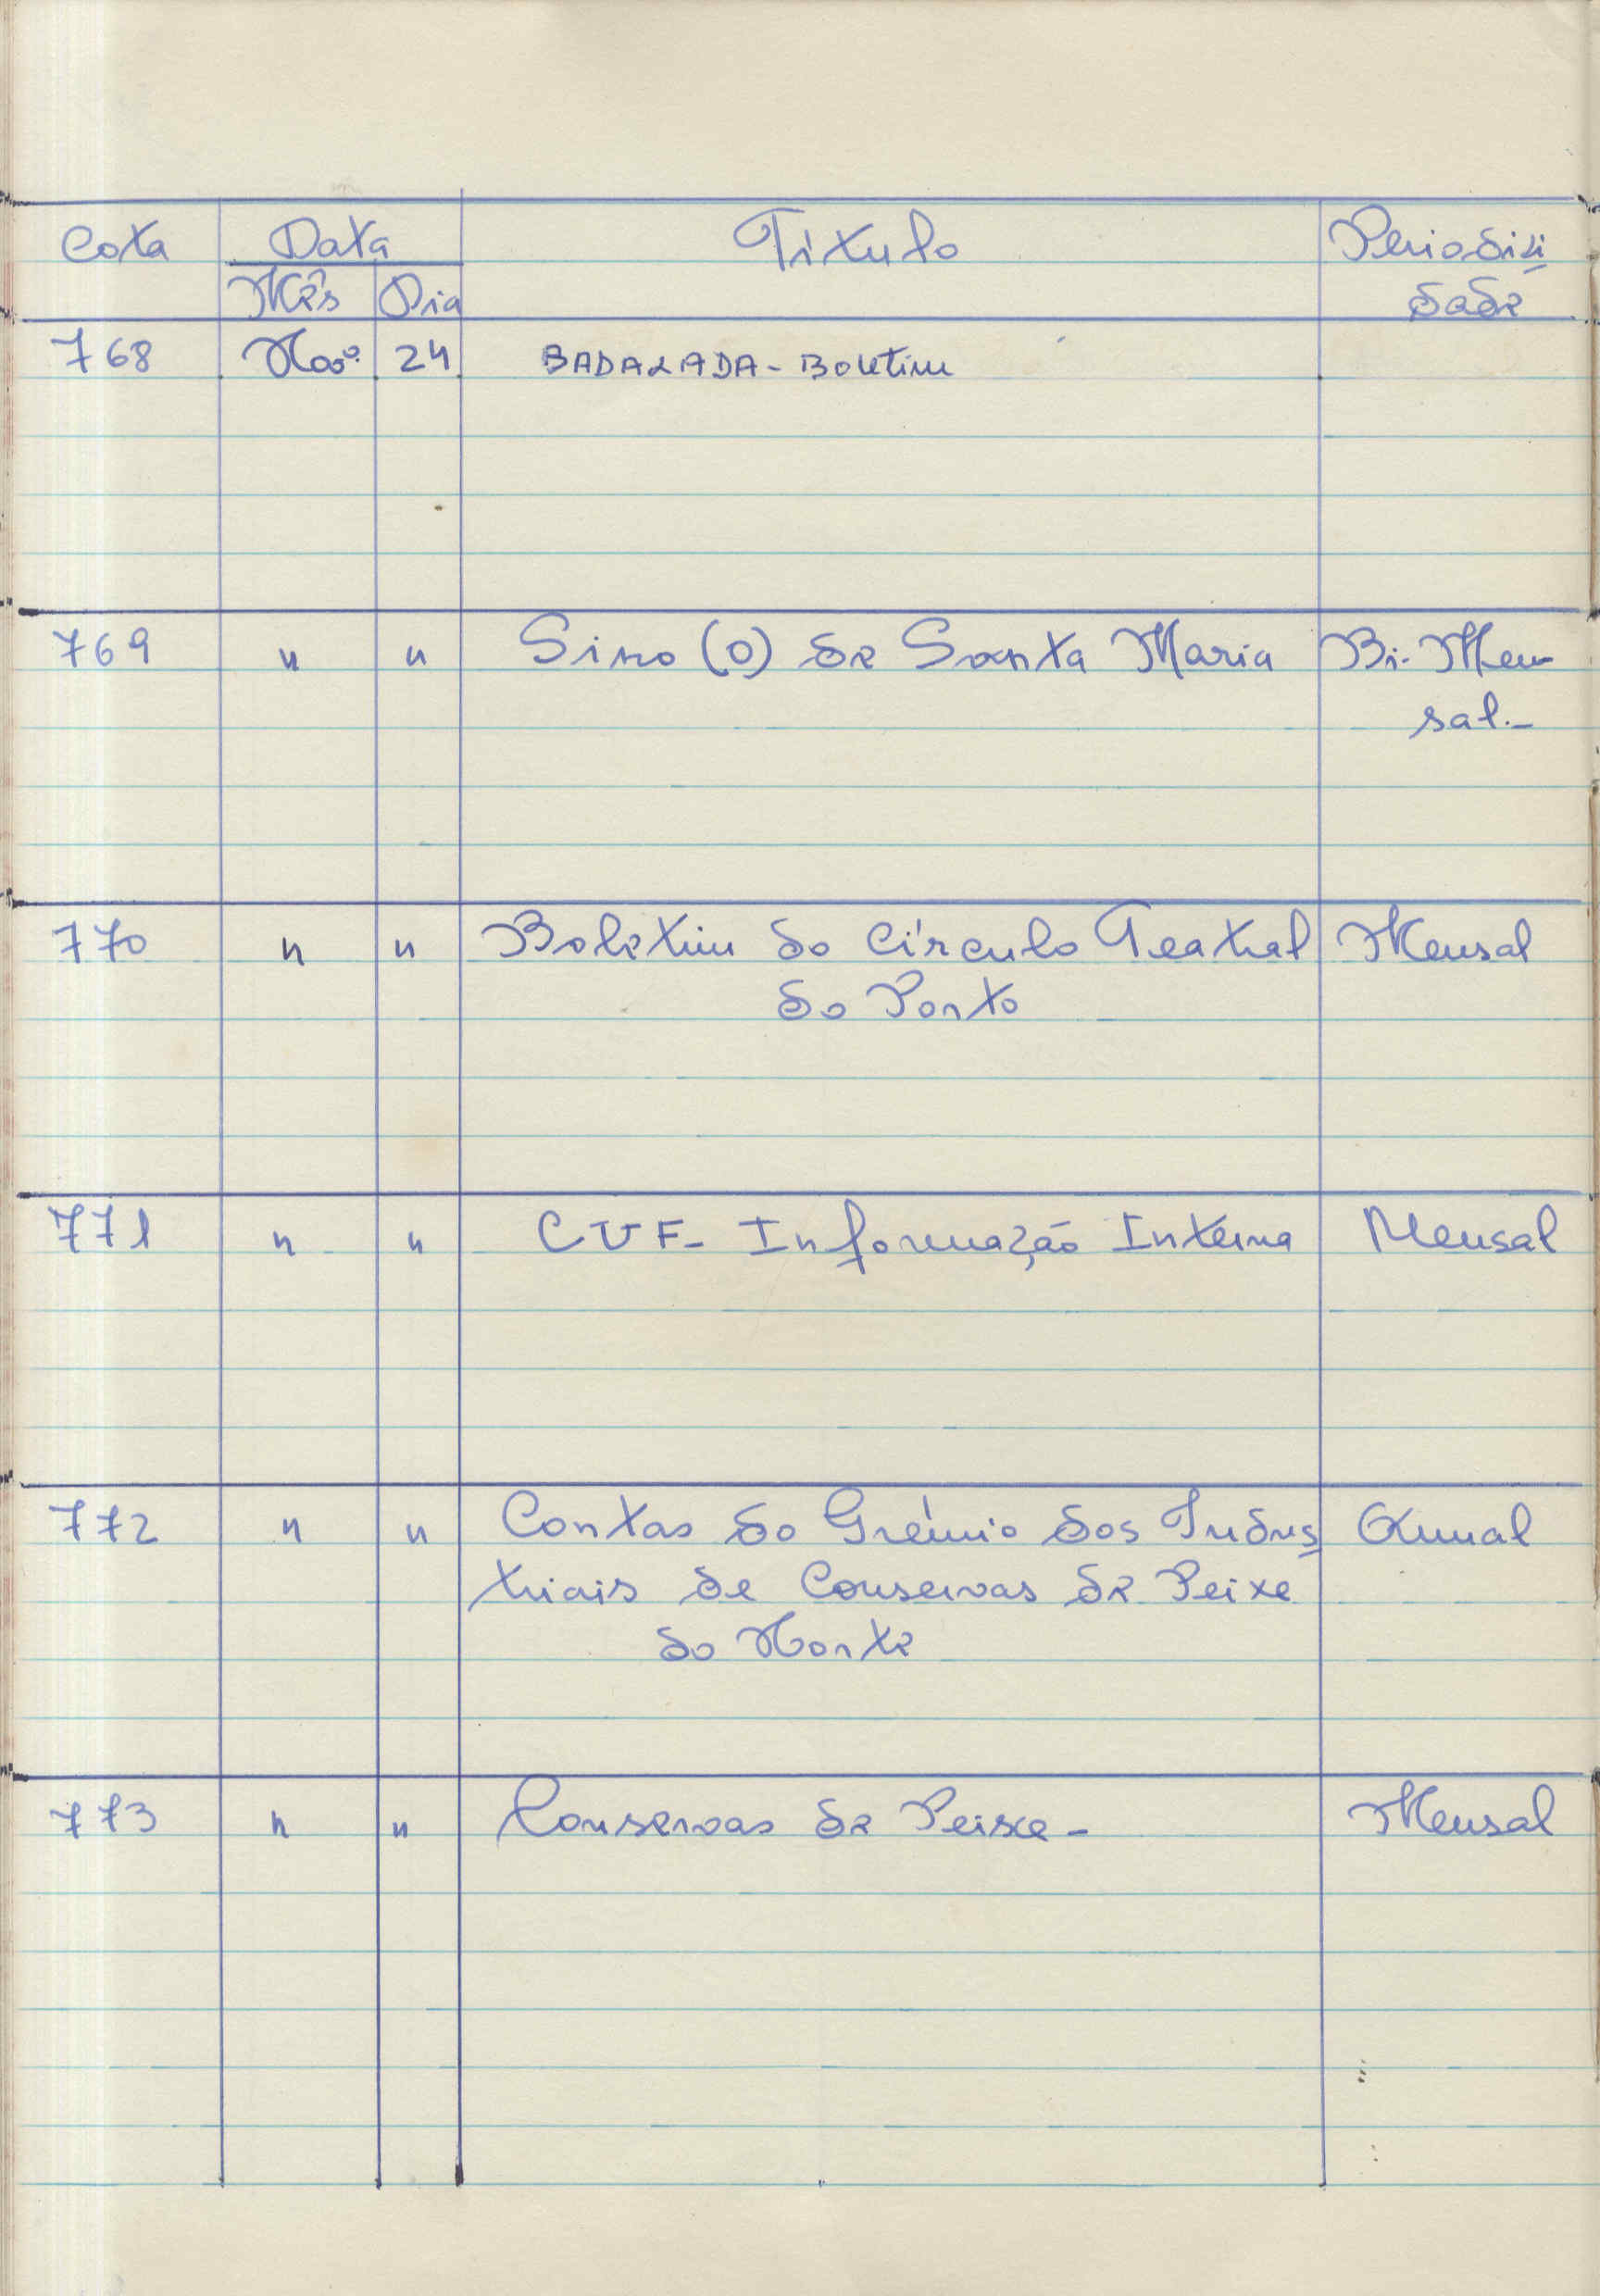 Cota Data Título Periodici
Mês Dia dade
768 Novº. 24 BADALADA - Boletim
769 " " Sino (O) de Santa Maria Bi-Men
sal.-
770 " " Boletim do Círculo Teatral Mensal
do Porto
771 " " CUF - Informação Interna Mensal
772 " " Contas do Grémio dos Indus Anual
triais de Conservas de Peixe
do Norte
773 " " Conservas de Peixe - Mensal